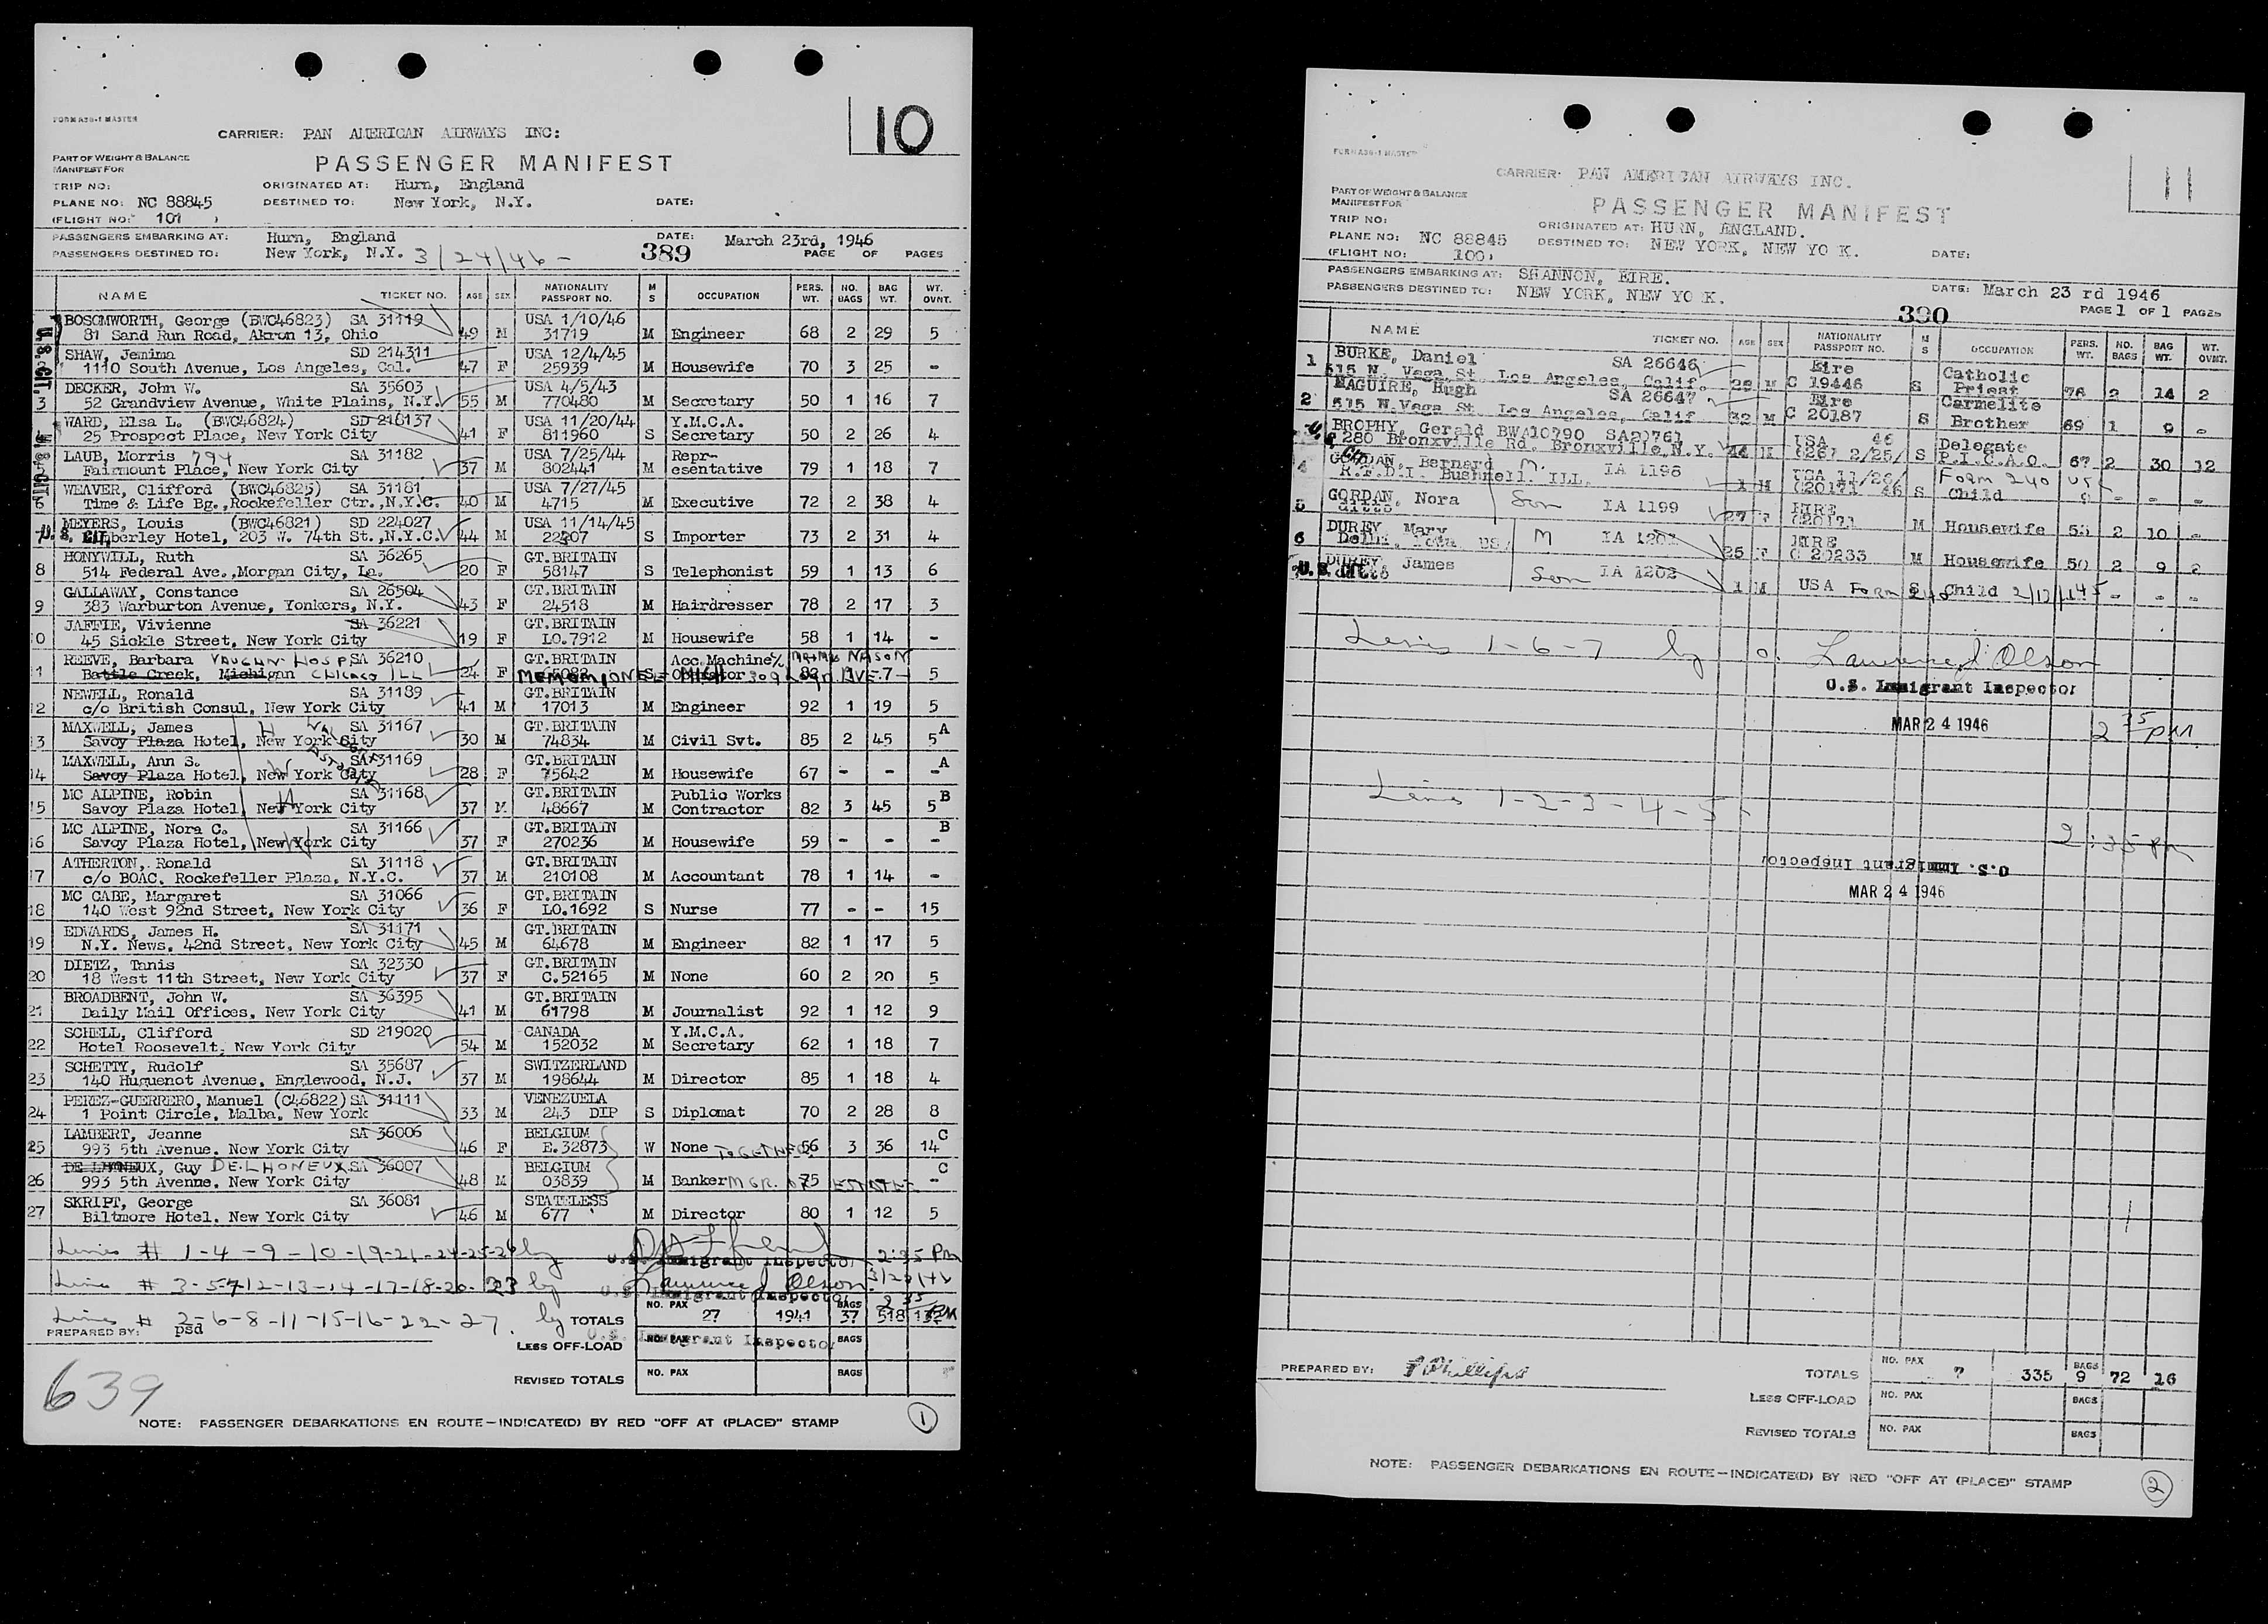 10
FORM A30-1 MASTER
CARRIER: PAN AMERICAN AIRWAYS INC:
PART OF WEIGHT & BALANCE
MANIFEST FOR
PASSENGER MANIFEST
TRIP NO: ORIGINATED AT: Hurn, England
PLANE NO: NC 88845 DESTINED TO: New York, N.Y. DATE:
(FLIGHT NO: 101 )
PASSENGERS EMBARKING AT: Hurn, England DATE: March 23rd, 1946
PASSENGERS DESTINED TO: New York, N.Y. 3/24/46 - 389 PAGE OF PAGES
NAME TICKET NO. AGE SEX NATIONALITY PASSPORT NO. M S OCCUPATION PERS. WT. NO. BAGS BAG WT. WT. OVNT.
BOSOMWORTH, George (BWC46823) SA 31119 USA 1/10/46
81 Sand Run Road, Akron 13, Ohio 49 M 31719 M Engineer 68 2 29 5
SHAW, Jemima SD 214311 USA 12/4/45
1110 South Avenue, Los Angeles, Cal. 47 F 25939 M Housewife 70 3 25 -
DECKER, John W. SA 35603 USA 4/5/43
3 52 Grandview Avenue, White Plains, N.Y. 55 M 770480 M Secretary 50 1 16 7
WARD, Elsa L. (BWC46824) SD 218137 USA 11/20/44 Y.M.C.A.
25 Prospect Place, New York City 41 F 811960 S Secretary 50 2 26 4
LAUB, Morris 794 SA 31182 USA 7/25/44 Repr-
Fairmount Place, New York City 37 M 802441 M esentative 79 1 18 7
WEAVER, Clifford (BWC46825) SA 31181 USA 7/27/45
6 Time & Life Bg., Rockefeller Ctr.,N.Y.C. 40 M 4715 M Executive 72 2 38 4
MEYERS, Louis (BWC46821) SD 224027 USA 11/14/45
7 U.S. CIT. Kimberley Hotel, 203 W. 74th St.,N.Y.C. 44 M 22207 S Importer 73 2 31 4
HONYWILL, Ruth SA 36265 GT.BRITAIN
8 514 Federal Ave.,Morgan City, La. 20 F 58147 S Telephonist 59 1 13 6
GALLAWAY, Constance SA 26504 GT.BRITAIN
9 383 Warburton Avenue, Yonkers, N.Y. 43 F 24518 M Hairdresser 78 2 17 3
JAFFIE, Vivienne SA 36221 GT.BRITAIN
10 45 Sickle Street, New York City 19 F LO.7912 M Housewife 58 1 14 -
REEVE, Barbara VAUGHN HOSP SA 36210 GT.BRITAIN Acc.Machine
11 Battle Creek, Michigan CHICAGO ILL 24 F S Operator 1 7 5
NEWELL, Ronald SA 31189 GT.BRITAIN
12 c/o British Consul, New York City 41 M 17013 M Engineer 92 1 19 5
MAXWELL, James H SA 31167 GT.BRITAIN
13 Savoy Plaza Hotel, New York City 30 M 74834 M Civil Svt. 85 2 45 5 A
MAXWELL, Ann S. W SA 31169 GT.BRITAIN
14 Savoy Plaza Hotel, New York City 28 F 75642 M Housewife 67 - - - A
MC ALPINE, Robin H SA 31168 GT.BRITAIN Public Works
15 Savoy Plaza Hotel, New York City 37 M 48667 M Contractor 82 3 45 5 B
MC ALPINE, Nora C. W SA 31166 GT.BRITAIN
16 Savoy Plaza Hotel, New York City 37 F 270236 M Housewife 59 - - - B
ATHERTON, Ronald SA 31118 GT.BRITAIN
17 c/o BOAC, Rockefeller Plaza, N.Y.C. 37 M 210108 M Accountant 78 1 14 -
MC CABE, Margaret SA 31066 GT.BRITAIN
18 140 West 92nd Street, New York City 36 F LO.1692 S Nurse 77 - - 15
EDWARDS, James H. SA 31171 GT.BRITAIN
19 N.Y. News, 42nd Street, New York City 45 M 64678 M Engineer 82 1 17 5
DIETZ, Tanis SA 32330 GT.BRITAIN
20 18 West 11th Street, New York City 37 F C.52165 M None 60 2 20 5
BROADBENT, John W. SA 36395 GT.BRITAIN
21 Daily Mail Offices, New York City 41 M 61798 M Journalist 92 1 12 9
SCHELL, Clifford SD 219020 CANADA Y.M.C.A.
22 Hotel Roosevelt, New York City 54 M 152032 M Secretary 62 1 18 7
SCHETTY, Rudolf SA 35687 SWITZERLAND
23 140 Huguenot Avenue, Englewood, N.J. 37 M 198644 M Director 85 1 18 4
PEREZ-GUERRERO, Manuel (C46822) SA 31111 VENEZUELA
24 1 Point Circle, Malba, New York 33 M 243 DIP S Diplomat 70 2 28 8
LAMBERT, Jeanne SA 36006 BELGIUM
25 993 5th Avenue, New York City 46 F E.32873 W None TOGETHER 56 3 36 14 C
DE LHONEUX, Guy DE.LHONEUX SA 36007 BELGIUM
26 993 5th Avenue, New York City 48 M 03839 M Banker MGR. OF 75 ESTATE - C
SKRIPT, George SA 36081 STATELESS
27 Biltmore Hotel, New York City 46 M 677 M Director 80 1 12 5
Lines # 1-4-9-10-19-21-24-25-26 by U.S. Immigrant Inspector 2:35 PM
Lines # 3-5-7-12-13-14-17-18-20-23 by Lawrence J Olson
U.S. Immigrant Inspector
Lines # 2-6-8-11-15-16-22-27. by TOTALS NO. PAX 27 1941 BAGS 37 518 132
PREPARED BY: psd
U.S. Immigrant Inspector
LESS OFF-LOAD NO. PAX BAGS
REVISED TOTALS NO. PAX BAGS
639
NOTE: PASSENGER DEBARKATIONS EN ROUTE—INDICATE(D) BY RED "OFF AT (PLACE)" STAMP
1
11
FORM A30-1 MASTER
CARRIER: PAN AMERICAN AIRWAYS INC.
PART OF WEIGHT & BALANCE
MANIFEST FOR
PASSENGER MANIFEST
TRIP NO: ORIGINATED AT: HURN, ENGLAND.
PLANE NO: NC 88845 DESTINED TO: NEW YORK, NEW YO K. DATE:
(FLIGHT NO: 100)
PASSENGERS EMBARKING AT: SHANNON, EIRE. DATE: March 23 rd 1946
PASSENGERS DESTINED TO: NEW YORK, NEW YO K. 390 PAGE 1 OF 1 PAGES
NAME TICKET NO. AGE SEX NATIONALITY PASSPORT NO. M S OCCUPATION PERS. WT. NO. BAGS BAG WT. WT. OVNT.
1 BURKE, Daniel SA 26646 Eire Catholic
515 N. Vega St. Los Angeles, Calif. 28 M C 19446 S Priest 76 2 14 2
2 MAGUIRE, Hugh SA 26647 Eire Carmelite
515 N.Vega St. Los Angeles, Calif 32 M C 20187 S Brother 69 1 9 -
BROPHY, Gerald BWA10790 SA20761 USA 46 Delegate
280 Bronxville Rd. Bronxville, N.Y. 44 M 6267 2/25/ S P.I.C.A.O. 67 2 30 12
4 GORDAN, Bernard M. IA 1198 USA 11/26/ Form 240
R.F.D.I. Bushnell. ILL. 1 M C20171 46 S Child - - -
5 GORDAN, Nora Son IA 1199 EIRE
ditto 27 F C20171 M Housewife 53 2 10 -
6 DUREY Mary M EIRE
25 F C 20233 M Housewife 50 2 9 2
U.S. CIT. DUREY, James Son IA 1202
ditto 1 M USA Form 240 S Child - - -
Lines 1-6-7 by Lawrence J Olson
U.S. Immigrant Inspector
MAR 24 1946 2 35 PM
Lines 1-2-3-4-5
2:35 PM
U.S. Immigrant Inspector
MAR 24 1946
PREPARED BY: Phillips TOTALS NO. PAX 7 335 BAGS 9 72 16
LESS OFF-LOAD NO. PAX BAGS
REVISED TOTALS NO. PAX BAGS
NOTE: PASSENGER DEBARKATIONS EN ROUTE—INDICATE(D) BY RED "OFF AT (PLACE)" STAMP
2